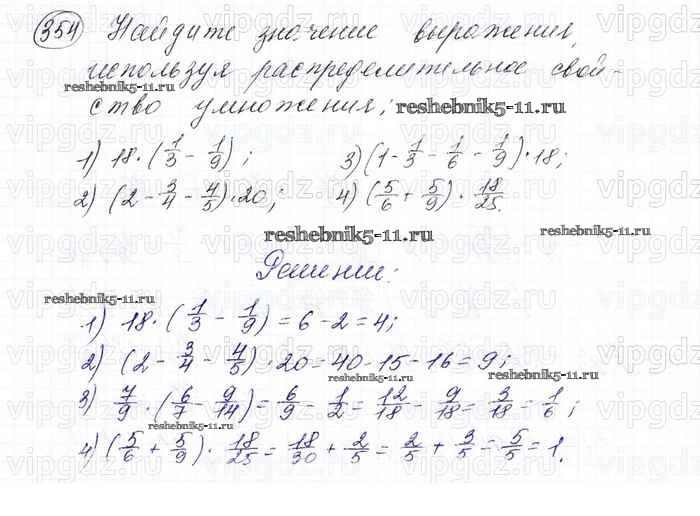 354 Найдите значение выражения,
используя распределительное свой-
ство умножения;
1) 18·(1/3 - 1/9);
3) (1 - 1/3 - 1/6 - 1/9)·18;
2) (2 - 3/4 - 4/5)·20;
4) (5/6 + 5/9)·18/25.
Решение:
1) 18·(1/3 - 1/9) = 6 - 2 = 4;
2) (2 - 3/4 - 4/5)·20 = 40 - 15 - 16 = 9;
3) 7/9·(6/7 - 9/14) = 6/9 - 1/2 = 12/18 - 9/18 = 3/18 = 1/6;
4) (5/6 + 5/9)·18/25 = 18/30 + 2/5 = 2/5 + 3/5 = 5/5 = 1.
reshebnik5-11.ru
reshebnik5-11.ru
reshebnik5-11.ru
reshebnik5-11.ru
reshebnik5-11.ru
reshebnik5-11.ru
reshebnik5-11.ru
vipgdz.ru